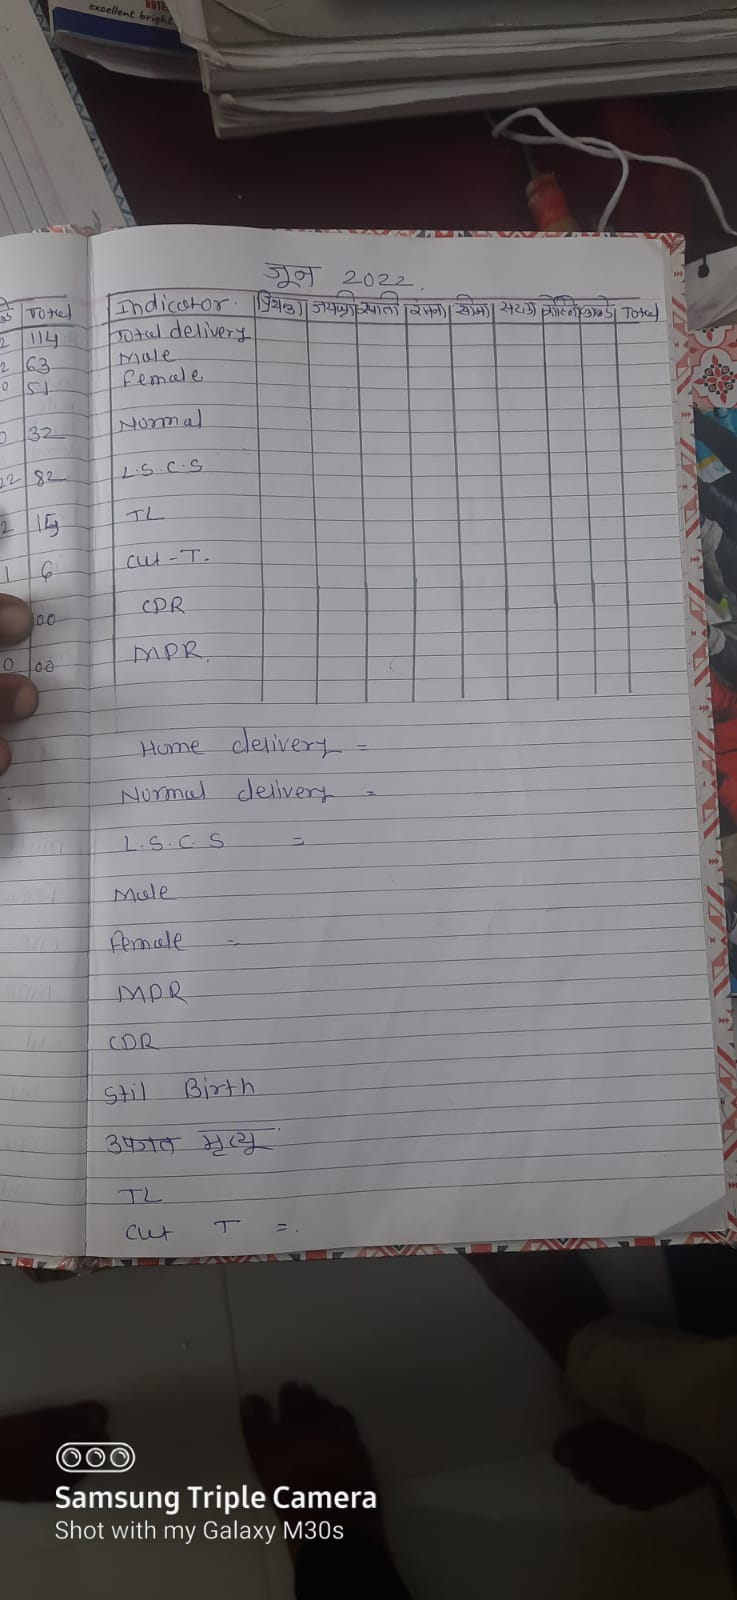 excellent bright
जून 2022.
Total
114
63
51
32
22 82
2 15
1 6
00
0 00
Indicator. Total
Total delivery
Male
Female
Normal
L.S.C.S
TL
Cut-T.
CDR
MDR.
Home delivery =
Normal delivery =
L.S.C.S =
Male
Female -
MDR
CDR
Stil Birth
मृत्यू
TL
Cut T =.
Samsung Triple Camera
Shot with my Galaxy M30s